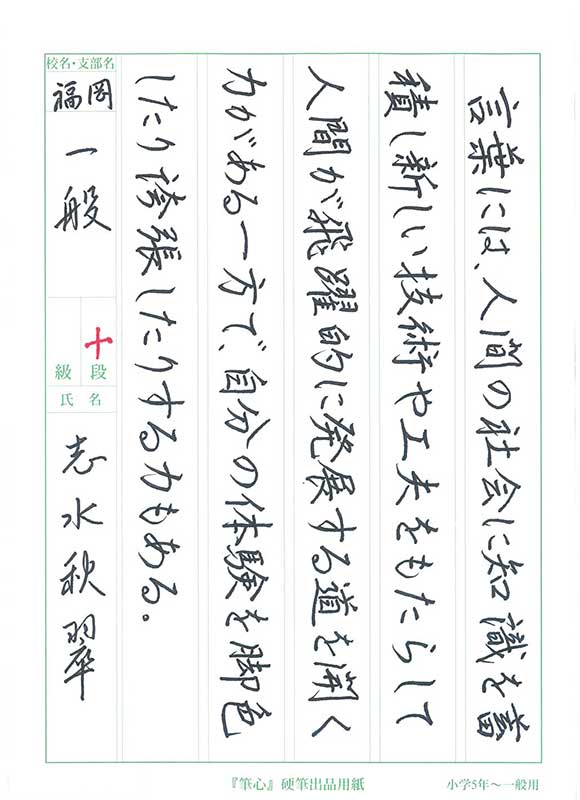 言葉には、人間の社会に知識を蓄
積し新しい技術や工夫をもたらして
人間が飛躍的に発展する道を開く
力がある一方で、自分の体験を脚色
したり誇張したりする力もある。
校名・支部名
福岡
一般
十
段
級
氏名
志水秋翠
『筆心』硬筆出品用紙
小学5年～一般用